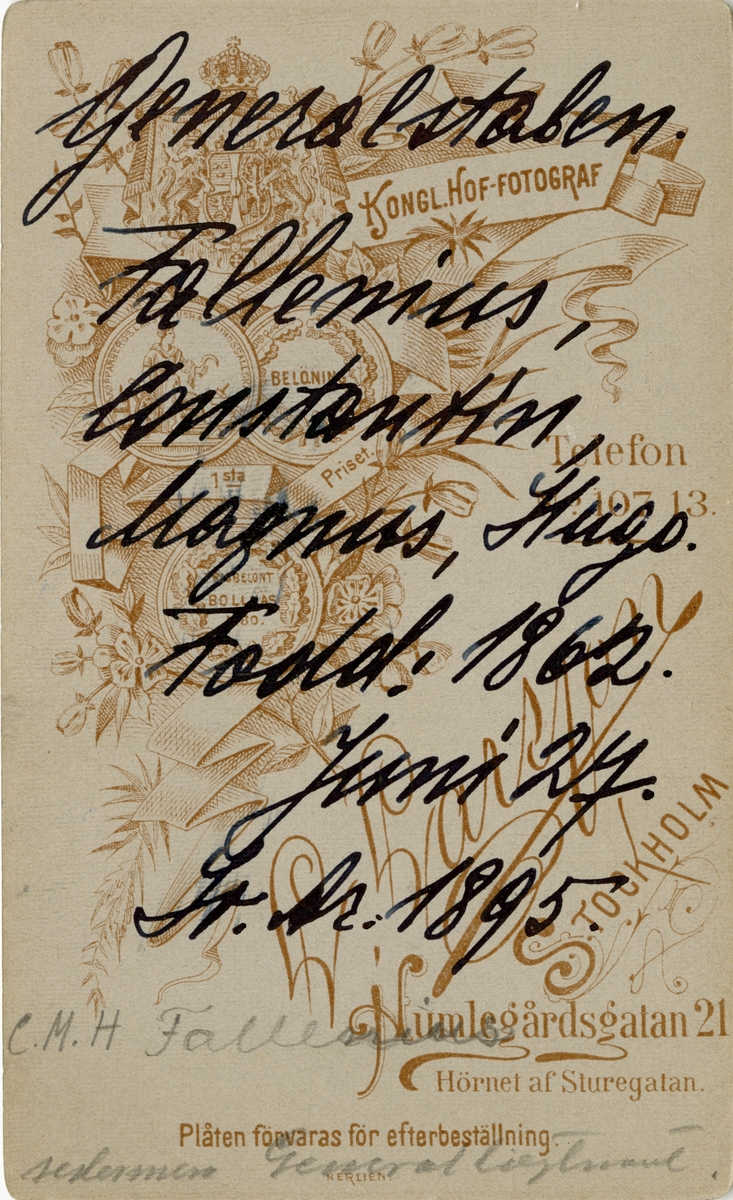 Generalstaben.
KONGL. HOF-FOTOGRAF
Fallenius,
BELÖNING
Constantin,
Telefon
107 13.
1sta Priset.
Magnus, Hugo.
BOLLNÄS
Född: 1862.
Juni 27.
STOCKHOLM
Fr. År. 1895.
Humlegårdsgatan 21
C.M.H Fallenius
Hörnet af Sturegatan.
Plåten förvaras för efterbeställning.
sedermera Generallöjtnant.
NERLIEN